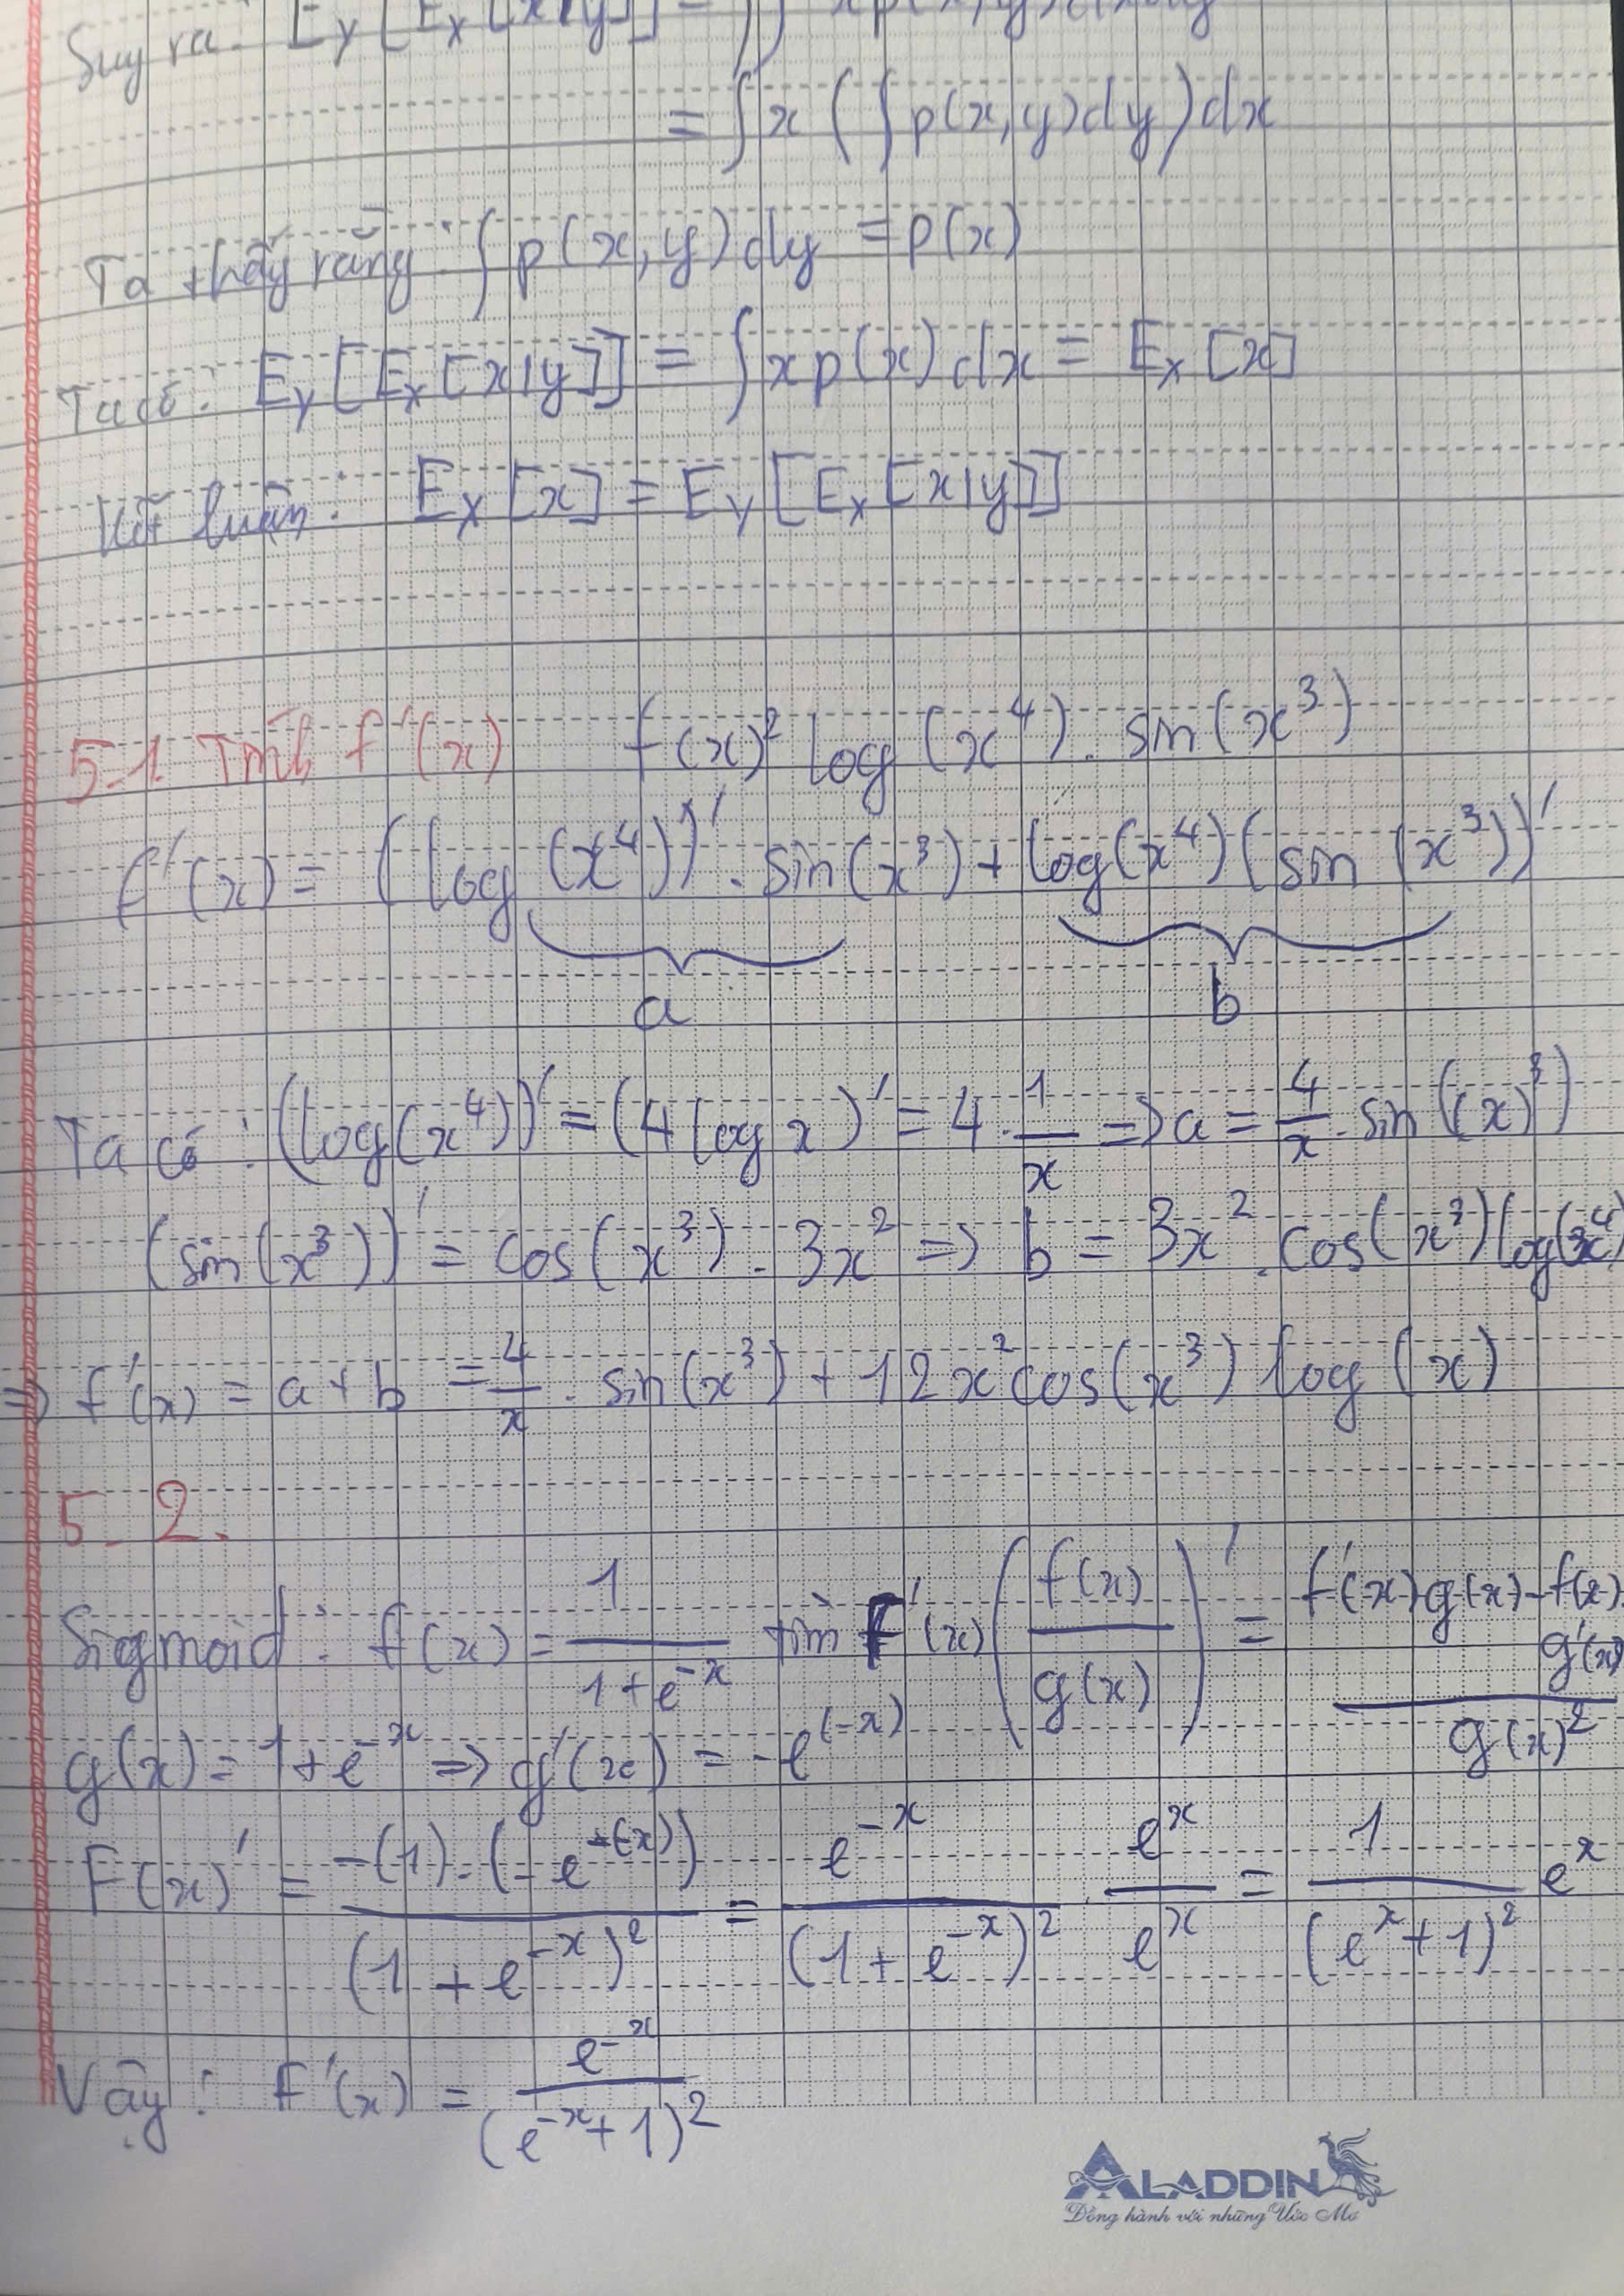 Suy ra: E_Y[E_X[x|y]] = ∫∫ xp(x,y)dxdy
= ∫ x (∫ p(x,y)dy) dx
Ta thấy rằng: ∫ p(x,y) dy = p(x)
Ta có: E_Y[E_X[x|y]] = ∫ x p(x) dx = E_X[x]
Kết luận: E_X[x] = E_Y[E_X[x|y]]
5.1. Tính f'(x) f(x)² log(x⁴) . sin(x³)
f'(x) = (log(x⁴))' . sin(x³) + log(x⁴)(sin(x³))'
a b
Ta có: (log(x⁴))' = (4 log x)' = 4 . 1/x => a = 4/x . sin((x)³)
(sin(x³))' = cos(x³) . 3x² => b = 3x² . cos(x³) log(x⁴)
=> f'(x) = a + b = 4/x . sin(x³) + 12x² cos(x³) log(x)
5.2.
Sigmoid: f(x) = 1/(1+e^-x) tìm F'(x) (f(x)/g(x))' = (f'(x)g(x) - f(x).g'(x))/g(x)²
g(x) = 1 + e^-x => g'(x) = -e^(-x)
F(x)' = (-(1).(-e^-(x)))/(1 + e^-x)² = e^-x/(1 + e^-x)² . e^x/e^x = 1/(e^x + 1)² e^x
Vậy: F'(x) = e^-x/(e^-x + 1)²
ALADDIN
Đồng hành với những Ước Mơ